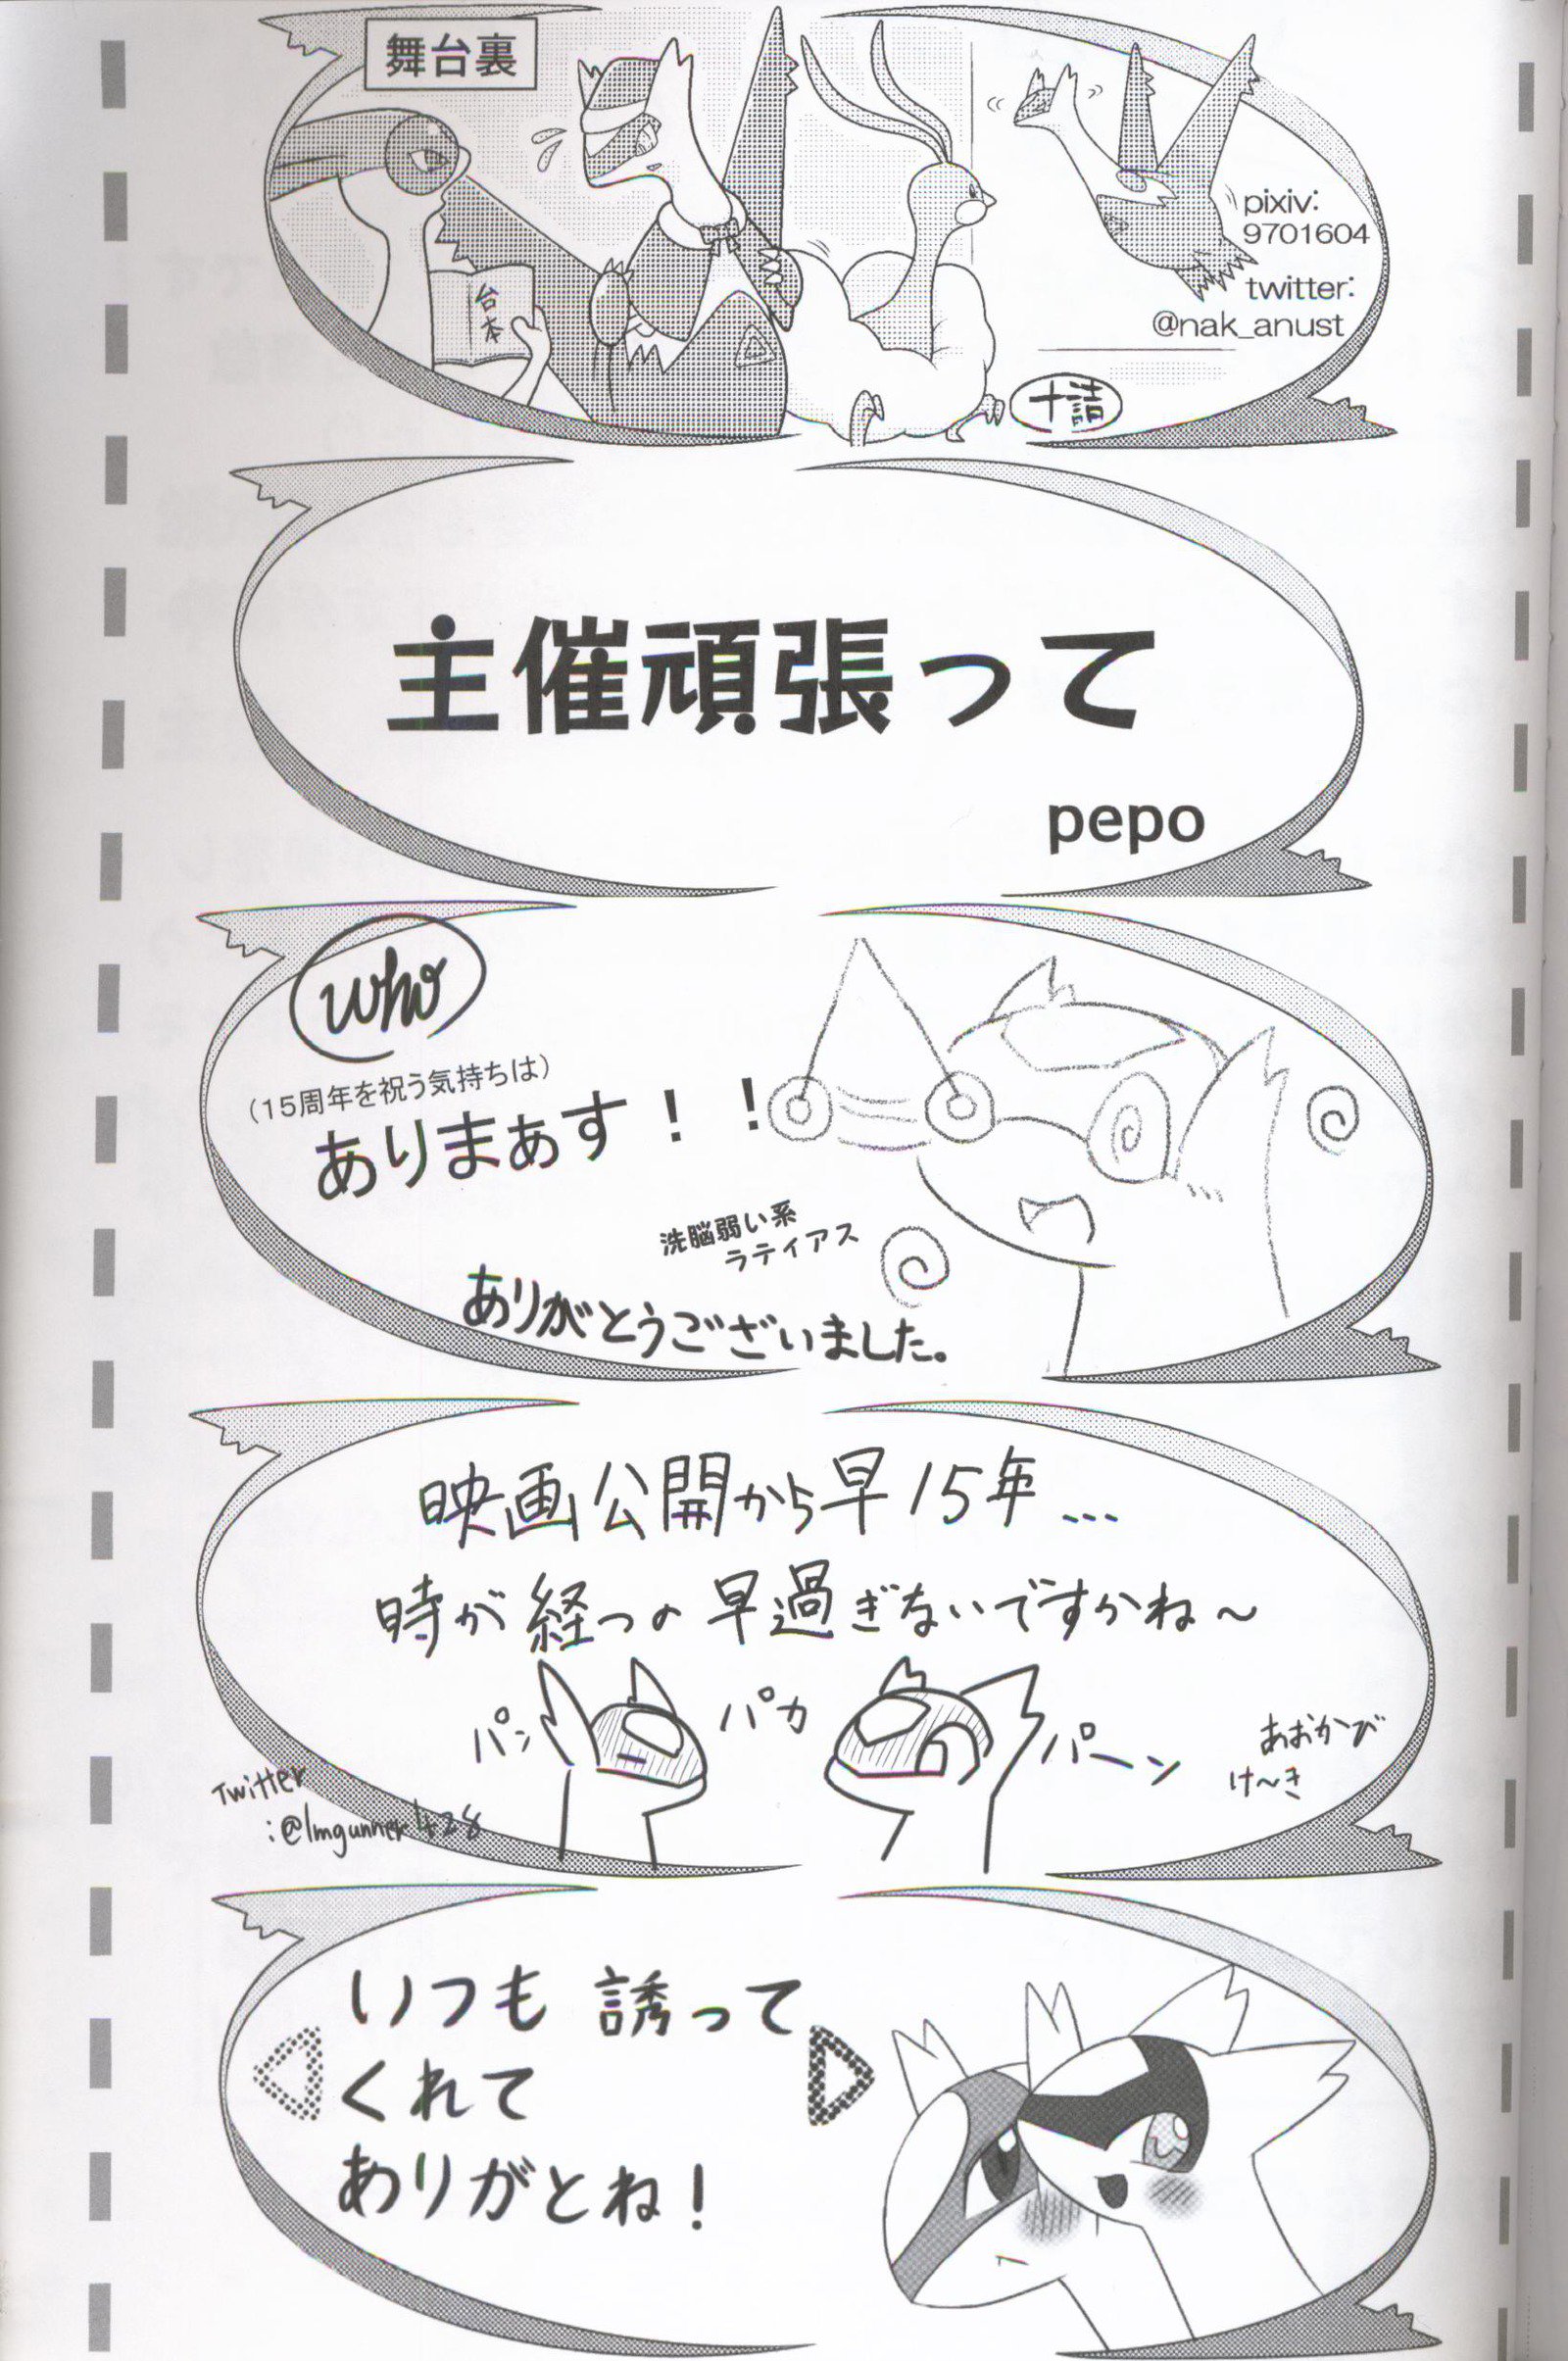 舞台裏
台本
pixiv:
9701604
twitter:
@nak_anust
十請
主催頑張って
pepo
who
(15周年を祝う気持ちは)
ありまぁす！！
洗脳弱い系
ラティアス
ありがとうございました。
映画公開から早15年...
時が経つの早過ぎないですかね〜
パン
パカ
パーン
あおかび
け〜き
Twitter
:@lmgunner428
いつも誘って
くれて
ありがとね！